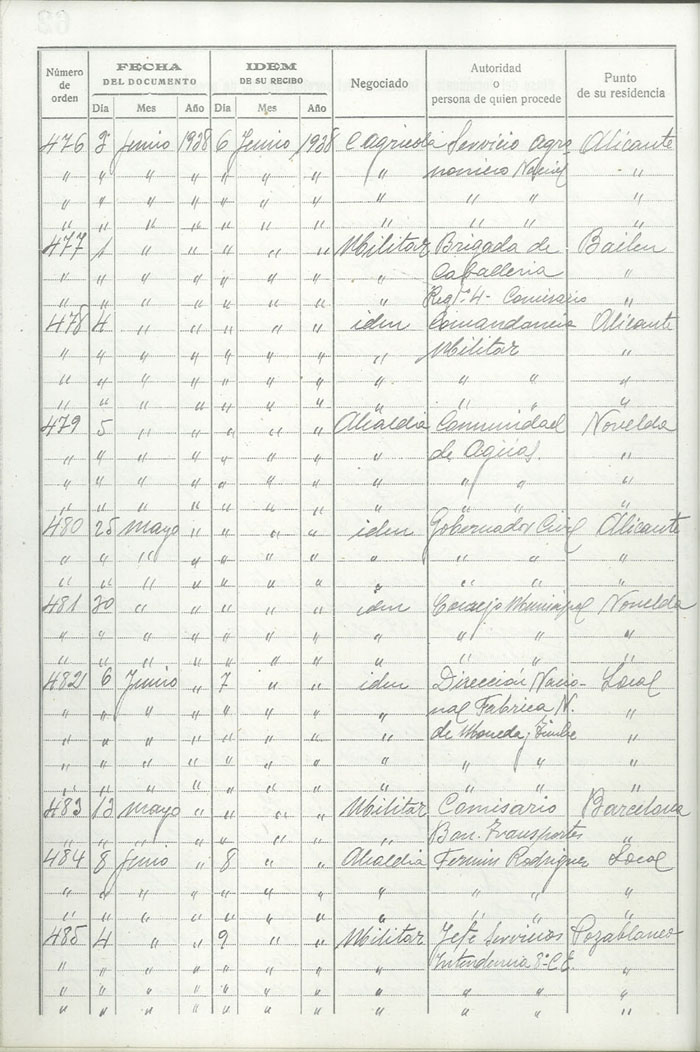 Número de orden FECHA DEL DOCUMENTO IDEM DE SU RECIBO Negociado Autoridad o persona de quien procede Punto de su residencia
Dia Mes Año Dia Mes Año
476 3 Junio 1938 6 Junio 1938 C Agricola Servicio Agro Alicante
" " " " " " " " nomico Nacional "
" " " " " " " " " " "
" " " " " " " " " " "
477 1 " " " " " Militar Brigada de Bailen
" " " " " " " " Caballeria "
" " " " " " " " Regt-4- Comisario "
478 4 " " " " " idem Comandancia Alicante
" " " " " " " " Militar "
" " " " " " " " " " "
" " " " " " " " " " "
479 5 " " " " " Alcaldia Comunidad Novelda
" " " " " " " " de Aguas "
" " " " " " " " " " "
" " " " " " " " " " "
480 25 mayo " " " " idem Gobernador Civil Alicante
" " " " " " " " " " "
" " " " " " " " " " "
481 30 " " " " " idem Consejo Municipal Novelda
" " " " " " " " " " "
" " " " " " " " " " "
482 6 Junio " 7 " " idem Dirección Nacio- Local
" " " " " " " " nal Fabrica N. "
" " " " " " " " de Moneda y Timbre "
" " " " " " " " " " "
" " " " " " " " " " "
483 13 mayo " " " " Militar Comisario Barcelona
" " " " " " " " Bon. Transportes "
484 8 Junio " 8 " " Alcaldia Fermin Rodriguez Local
" " " " " " " " " " "
" " " " " " " " " " "
485 4 " " 9 " " Militar Jefe Servicios Pozablanco
" " " " " " " " Intendencia 8º C.E. "
" " " " " " " " " " "
" " " " " " " " " " "